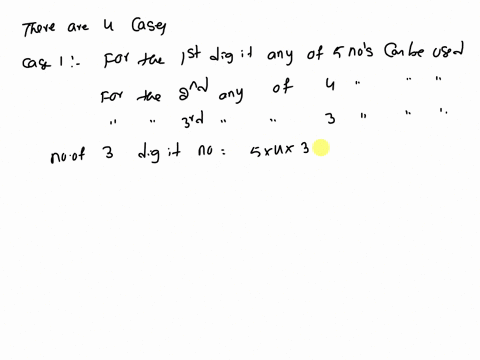 There are 4 Cases
Case 1 :- For the 1st digit any of 5 no's Can be used
For the 2nd any of 4 " " "
" " 3rd " " 3 " " "
no.of 3 digit no : 5x4x3